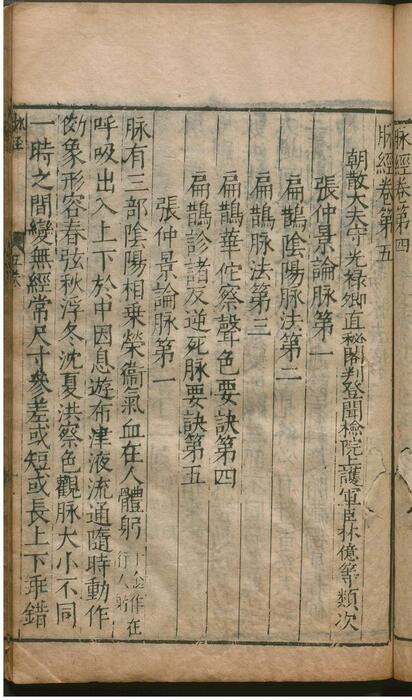 脉經卷第四
脉經卷第五
朝散大夫守光禄卿直秘閣判登聞檢院上護軍臣林億等類次
張仲景論脉第一
扁鵲陰陽脉法第二
扁鵲脉法第三
扁鵲華佗察聲色要訣第四
扁鵲診諸反逆死脉要訣第五
張仲景論脉第一
脉有三部陰陽相乗榮衛氣血在人體躬千金作在行人躬
呼吸出入上下於中因息遊布津液流通隨時動作
効象形容春弦秋浮冬沈夏洪察色觀脉大小不同
一時之間變無經常尺寸參差或短或長上下乖錯